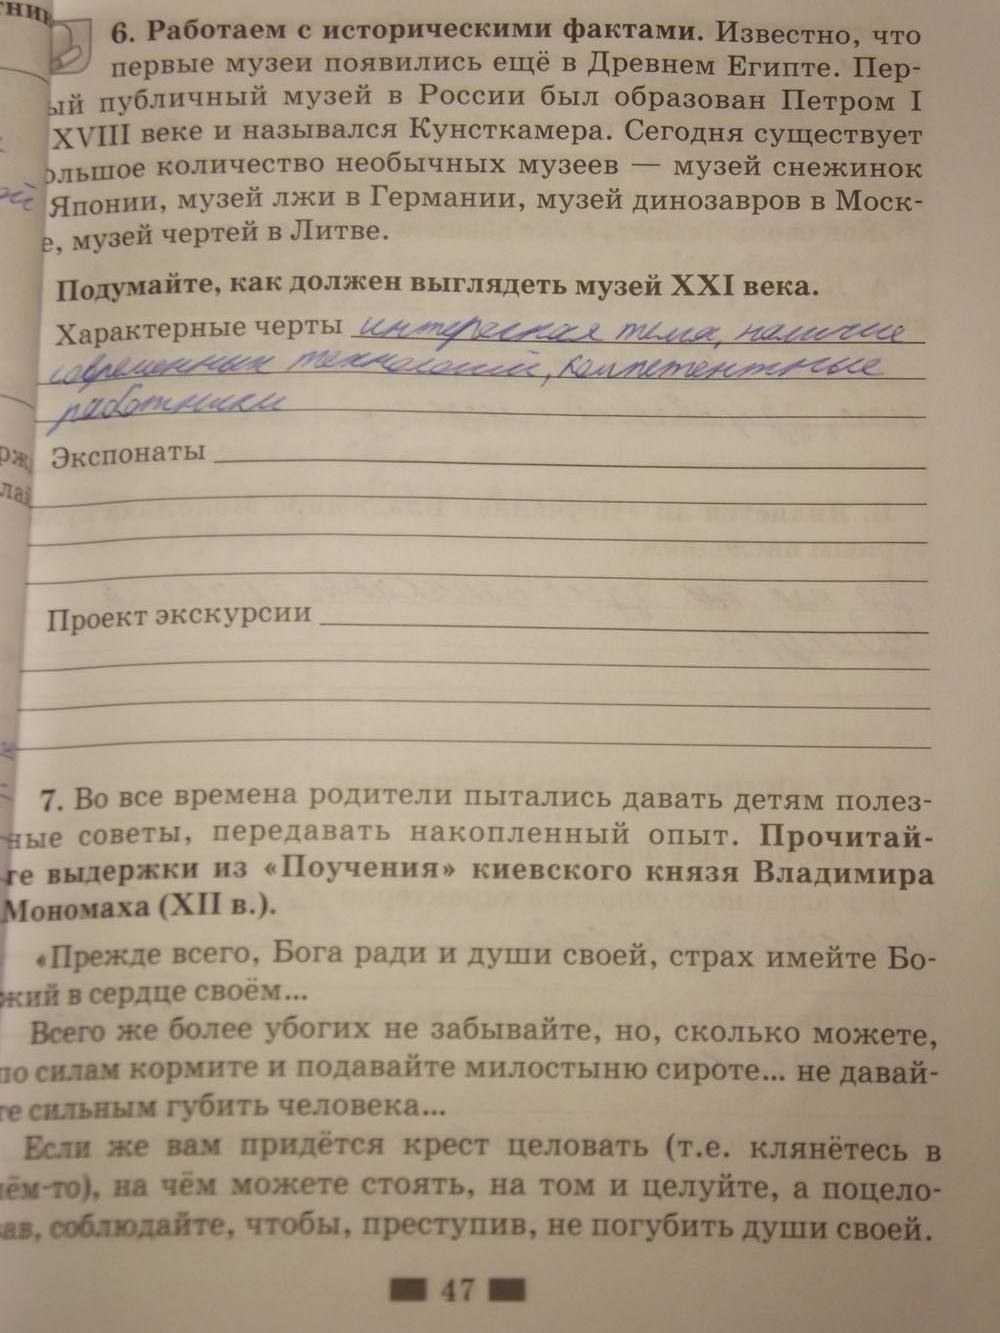 6. Работаем с историческими фактами. Известно, что
первые музеи появились ещё в Древнем Египте. Пер-
ый публичный музей в России был образован Петром I
XVIII веке и назывался Кунсткамера. Сегодня существует
ольшое количество необычных музеев — музей снежинок
Японии, музей лжи в Германии, музей динозавров в Моск-
е, музей чертей в Литве.
Подумайте, как должен выглядеть музей XXI века.
Характерные черты интересная тема, наличие
современных технологий, компетентные
работники
Экспонаты
Проект экскурсии
7. Во все времена родители пытались давать детям полез-
ные советы, передавать накопленный опыт. Прочитай-
те выдержки из «Поучения» киевского князя Владимира
Мономаха (XII в.).
«Прежде всего, Бога ради и души своей, страх имейте Бо-
жий в сердце своём...
Всего же более убогих не забывайте, но, сколько можете,
по силам кормите и подавайте милостыню сироте... не давай-
те сильным губить человека...
Если же вам придётся крест целовать (т.е. клянётесь в
чём-то), на чём можете стоять, на том и целуйте, а поцело-
вав, соблюдайте, чтобы, преступив, не погубить души своей.
47